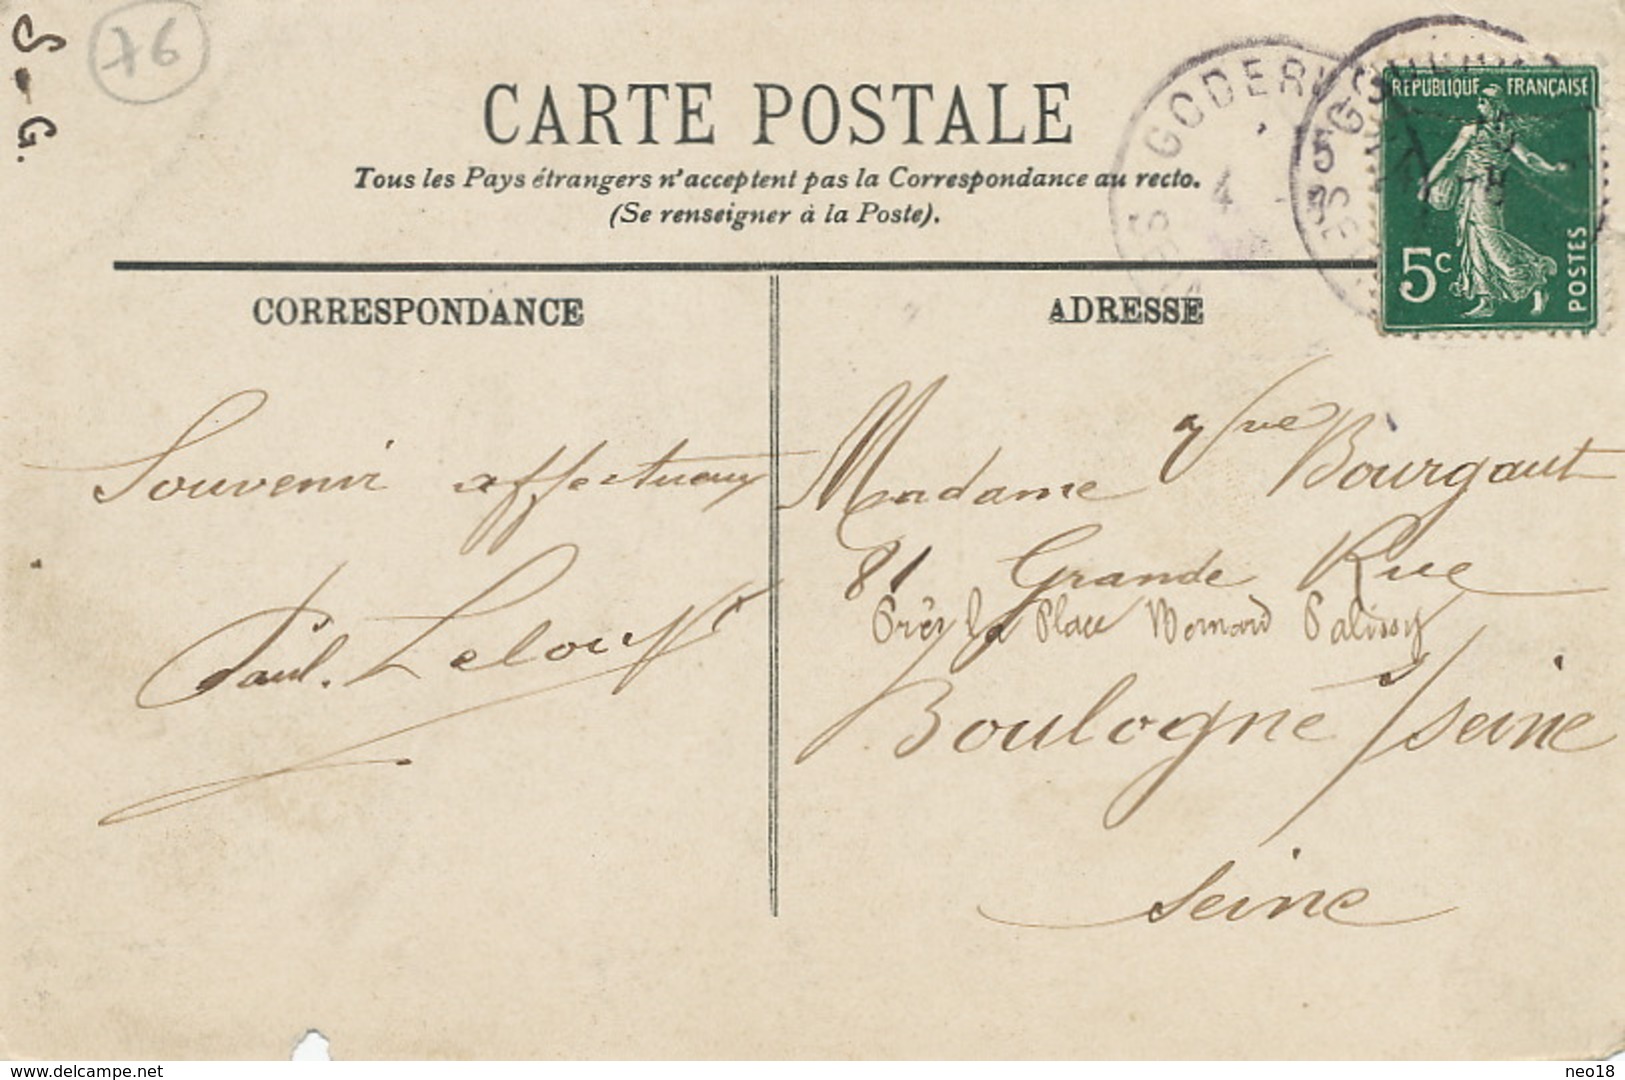 S-G.
76
CARTE POSTALE
Tous les Pays étrangers n'acceptent pas la Correspondance au recto.
(Se renseigner à la Poste).
GODERV
4
RÉPUBLIQUE FRANÇAISE
5c
POSTES
CORRESPONDANCE
ADRESSE
Souvenir affectueux
Paul.
Madame Vve Bourgaut
81 Grande Rue
Près la Place Bernard Palissy
Boulogne s/ seine
seine
delcampe.net
neo18